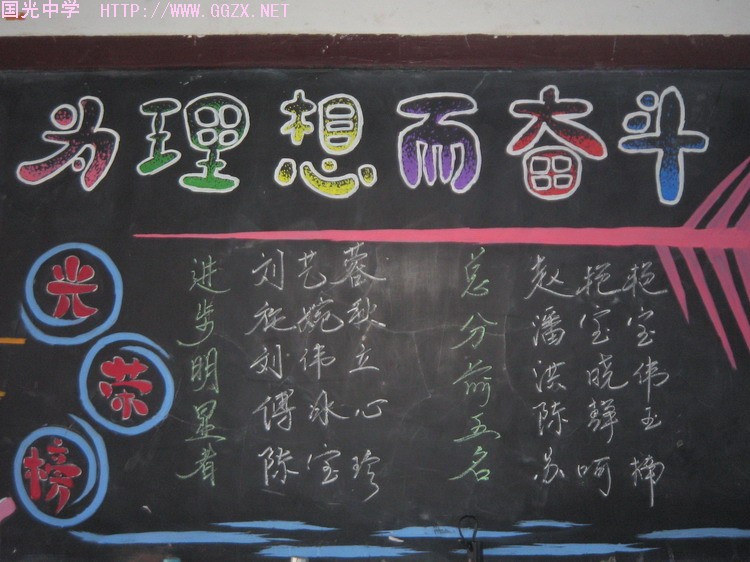 国光中学 HTTP://WWW.GGZX.NET
为理想而奋斗
光荣榜
进步明显者
刘艺蓉
刘伟立
傅冰心
陈宝珍
总分前五名
赵艳艳
潘宝宝
洪晓伟
陈静玉
苏呵楠